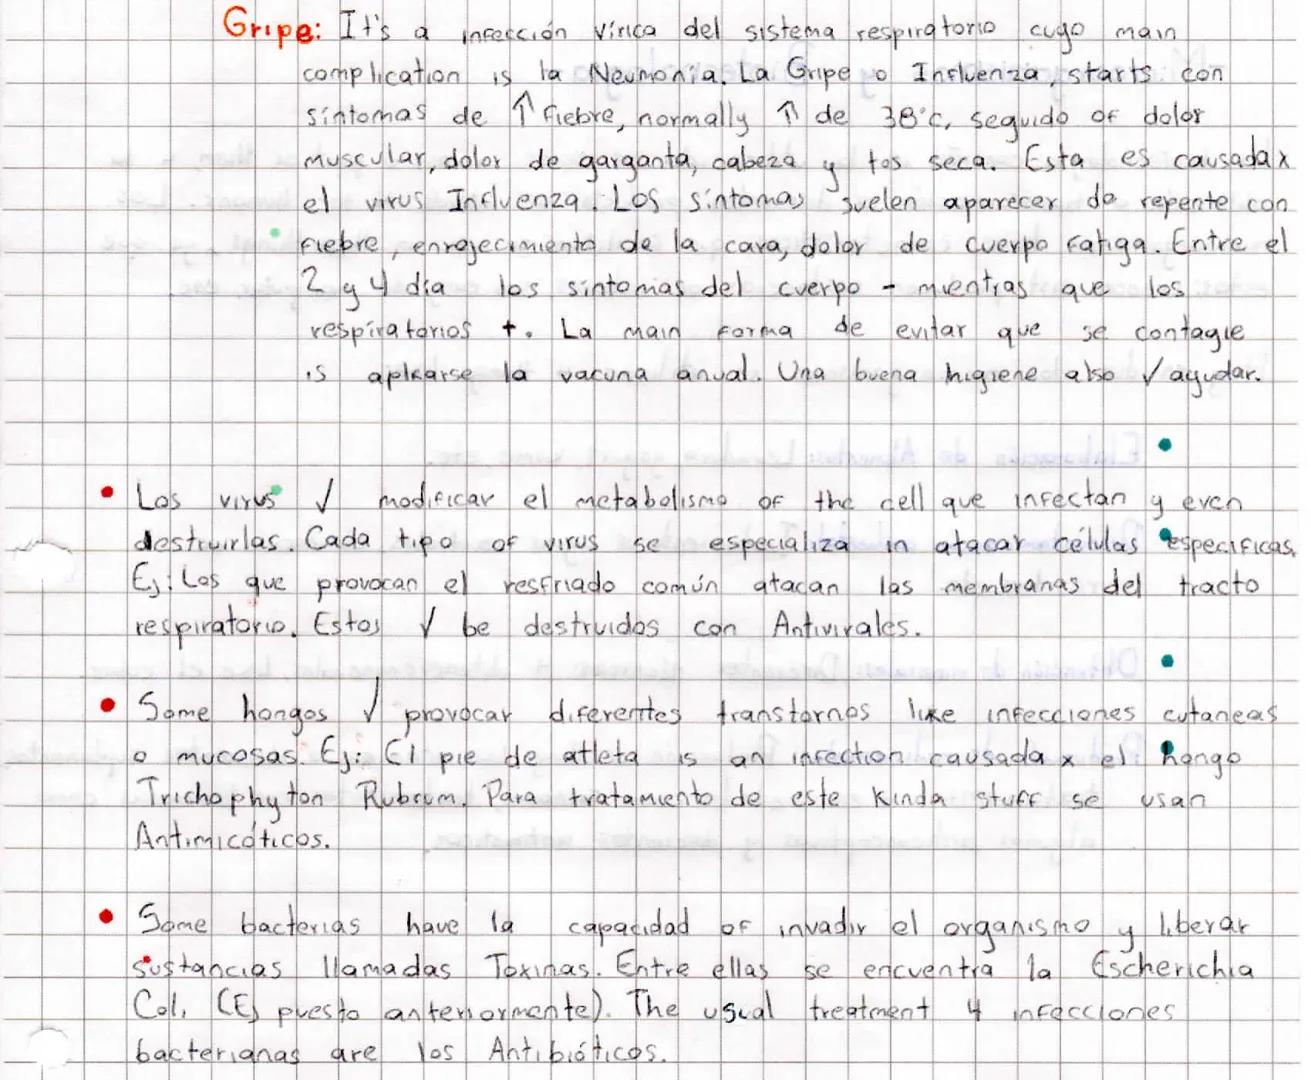 Gripe: It's a infección vírica del sistema respiratorio cuyo main
complication is la Neumonía. La Gripe o Influenza, starts con
síntomas de ↑ fiebre, normally ↑ de 38°C, seguido of dolor
muscular, dolor de garganta, cabeza y tos seca. Esta es causada x
el virus Influenza. Los síntomas suelen aparecer de repente con
fiebre, enrojecimiento de la cara, dolor de cuerpo fatiga. Entre el
2 y 4 día los síntomas del cuerpo - mientras que los
respiratorios +. La main forma de evitar que se contagie
is aplicarse la vacuna anual. Una buena higiene also √ ayudar.
• Los virus √ modificar el metabolismo of the cell que infectan y even
destruirlas. Cada tipo of virus se especializa in atacar células específicas.
Ej: Los que provocan el resfriado común atacan las membranas del tracto
respiratorio. Estos √ be destruidos con Antivirales.
• Some hongos √ provocar diferentes transtornos like infecciones cutaneas
o mucosas. Ej: El pie de atleta is an infection causada x el hongo
Trichophyton Rubrum. Para tratamiento de este kinda stuff se usan
Antimicóticos.
• Some bacterias have la capacidad of invadir el organismo y liberar
sustancias llamadas Toxinas. Entre ellas se encuentra la Escherichia
Coli (Ej puesto anteriormente). The usual treatment 4 infecciones
bacterianas are los Antibióticos.